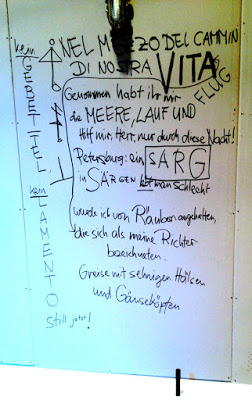 NEL MEZZO DEL CAMMIN
DI NOSTRA VITA
FLUG
Genommen habt ihr mir
die MEERE, LAUF UND
Hilf mir, Herr, nur durch diese Nacht!
Petersburg: ein SARG
in SÄRGEN hat man schlecht
wurde ich von Räubern angehalten,
die sich als meine Richter
bezeichneten.
Greise mit sehnigen Hälsen
und Gänseköpfen
kein
GEBETTEL
kein
LAMENTO
Still jetzt!